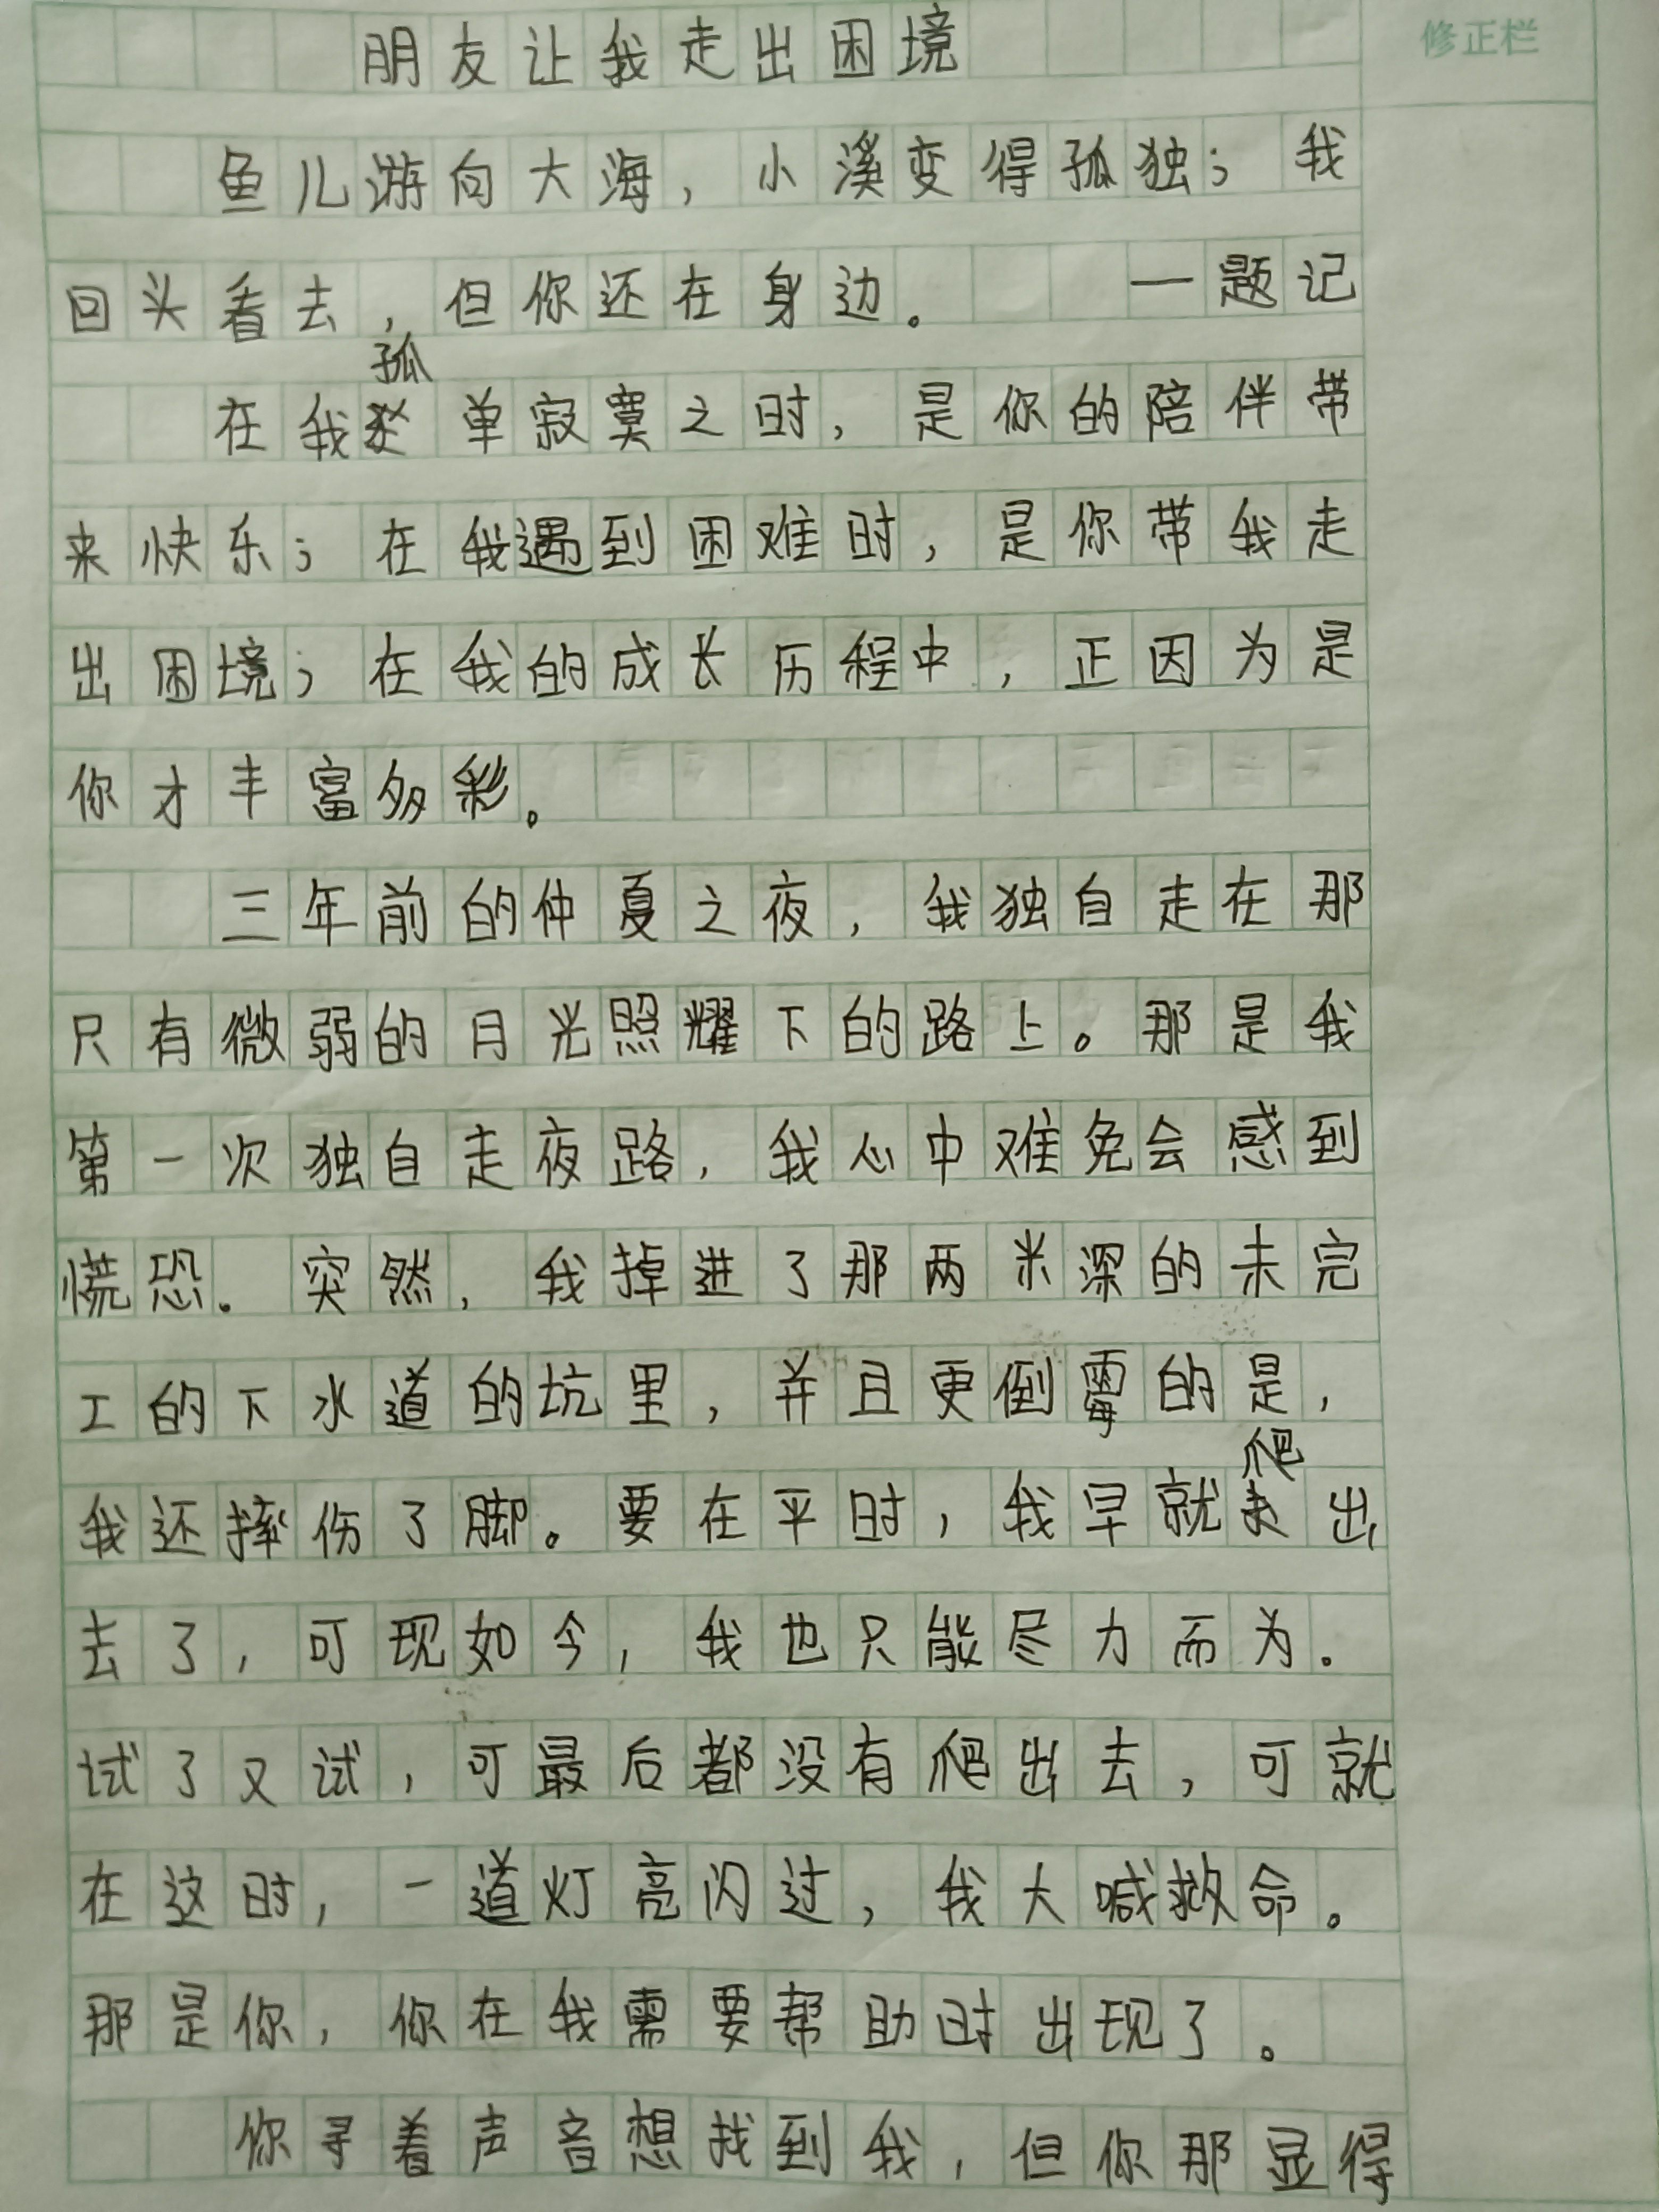 朋友让我走出困境
修正栏
鱼儿游向大海，小溪变得孤独；我
回头看去，但你还在身边。 —题记
在我孤单寂寞之时，是你的陪伴带
来快乐；在我遇到困难时，是你带我走
出困境；在我的成长历程中，正因为是
你才丰富多彩。
三年前的仲夏之夜，我独自走在那
只有微弱的月光照耀下的路上。那是我
第一次独自走夜路，我心中难免会感到
慌恐。突然，我掉进了那两米深的未完
工的下水道的坑里，并且更倒霉的是，
我还摔伤了脚。要在平时，我早就爬出
去了，可现如今，我也只能尽力而为.
试了又试，可最后都没有爬出去，可就
在这时，一道灯亮闪过，我大喊救命。
那是你，你在我需要帮助时出现了。
你寻着声音想找到我，但你那显得